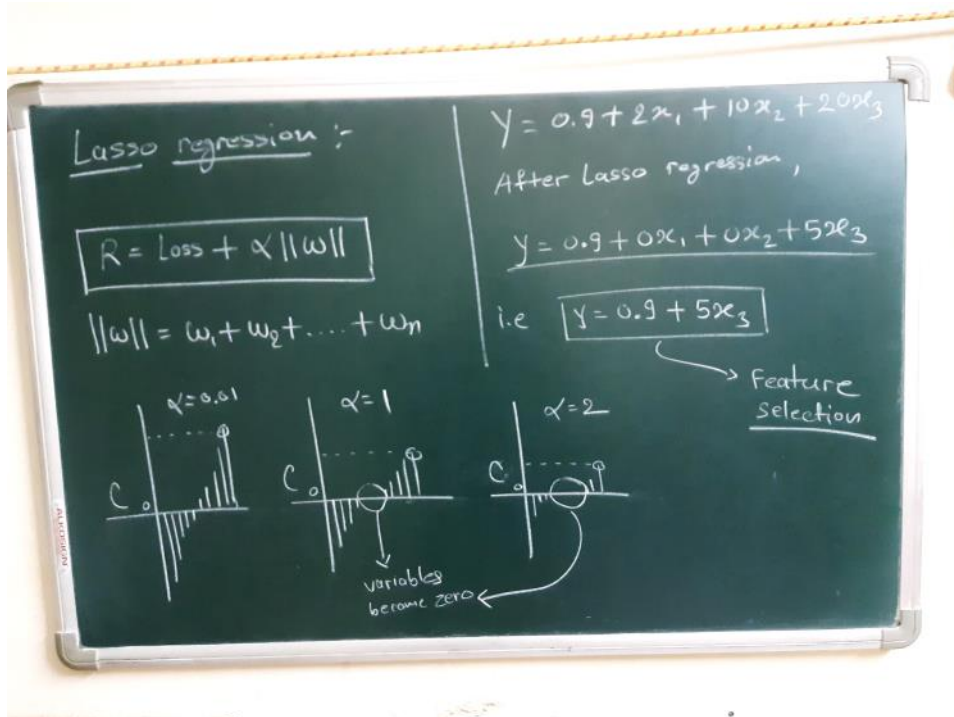 Lasso regression :-
R = Loss + α ||ω||
||ω|| = ω₁ + ω₂ + ..... + ωₙ
α=0.01
C
0
α=1
C
0
α=2
C
0
variables
become zero
Y = 0.9 + 2x₁ + 10x₂ + 20x₃
After Lasso regression,
y = 0.9 + 0x₁ + 0x₂ + 5x₃
i.e y = 0.9 + 5x₃
Feature
selection